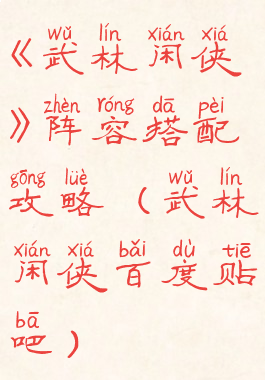 wǔ lín xián xiá
《武林闲侠
zhèn róng dā pèi
》阵容搭配
gōng lüè wǔ lín
攻略（武林
xián xiá bǎi dù tiē
闲侠百度贴
bā
吧）